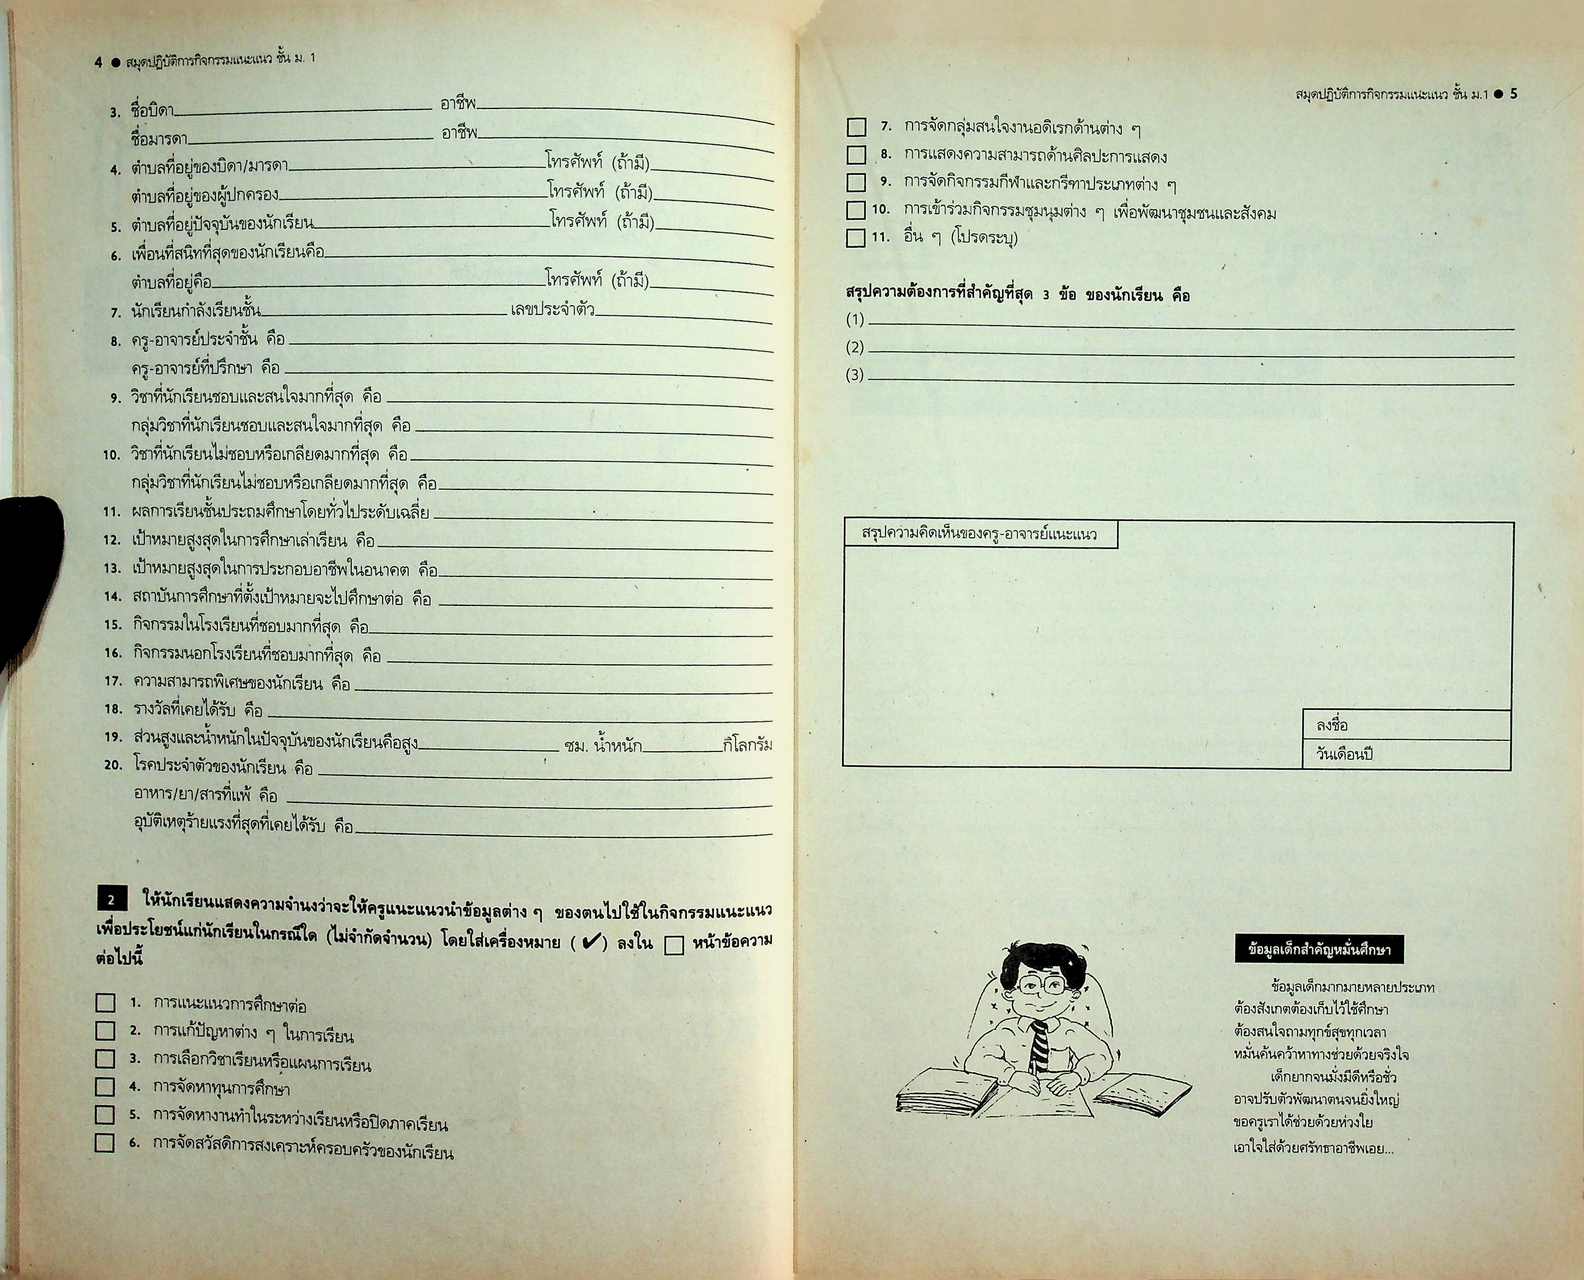 4 ● สมุดปฏิบัติการกิจกรรมแนะแนว ชั้น ม. 1
3. ชื่อบิดา อาชีพ
ชื่อมารดา อาชีพ
4. ตำบลที่อยู่ของบิดา/มารดา โทรศัพท์ (ถ้ามี)
ตำบลที่อยู่ของผู้ปกครอง โทรศัพท์ (ถ้ามี)
5. ตำบลที่อยู่ปัจจุบันของนักเรียน โทรศัพท์ (ถ้ามี)
6. เพื่อนที่สนิทที่สุดของนักเรียนคือ
ตำบลที่อยู่คือ โทรศัพท์ (ถ้ามี)
7. นักเรียนกำลังเรียนชั้น เลขประจำตัว
8. ครู-อาจารย์ประจำชั้น คือ
ครู-อาจารย์ที่ปรึกษา คือ
9. วิชาที่นักเรียนชอบและสนใจมากที่สุด คือ
กลุ่มวิชาที่นักเรียนชอบและสนใจมากที่สุด คือ
10. วิชาที่นักเรียนไม่ชอบหรือเกลียดมากที่สุด คือ
กลุ่มวิชาที่นักเรียนไม่ชอบหรือเกลียดมากที่สุด คือ
11. ผลการเรียนชั้นประถมศึกษาโดยทั่วไประดับเฉลี่ย
12. เป้าหมายสูงสุดในการศึกษาเล่าเรียน คือ
13. เป้าหมายสูงสุดในการประกอบอาชีพในอนาคต คือ
14. สถาบันการศึกษาที่ตั้งเป้าหมายจะไปศึกษาต่อ คือ
15. กิจกรรมในโรงเรียนที่ชอบมากที่สุด คือ
16. กิจกรรมนอกโรงเรียนที่ชอบมากที่สุด คือ
17. ความสามารถพิเศษของนักเรียน คือ
18. รางวัลที่เคยได้รับ คือ
19. ส่วนสูงและน้ำหนักในปัจจุบันของนักเรียนคือสูง ซม. น้ำหนัก กิโลกรัม
20. โรคประจำตัวของนักเรียน คือ
อาหาร/ยา/สารที่แพ้ คือ
อุบัติเหตุร้ายแรงที่สุดที่เคยได้รับ คือ
2 ให้นักเรียนแสดงความจำนงว่าจะให้ครูแนะแนวนำข้อมูลต่าง ๆ ของตนไปใช้ในกิจกรรมแนะแนว
เพื่อประโยชน์แก่นักเรียนในกรณีใด (ไม่จำกัดจำนวน) โดยใส่เครื่องหมาย (✓) ลงใน □ หน้าข้อความ
ต่อไปนี้
□ 1. การแนะแนวการศึกษาต่อ
□ 2. การแก้ปัญหาต่าง ๆ ในการเรียน
□ 3. การเลือกวิชาเรียนหรือแผนการเรียน
□ 4. การจัดหาทุนการศึกษา
□ 5. การจัดหางานทำในระหว่างเรียนหรือปิดภาคเรียน
□ 6. การจัดสวัสดิการสงเคราะห์ครอบครัวของนักเรียน
สมุดปฏิบัติการกิจกรรมแนะแนว ชั้น ม.1 ● 5
□ 7. การจัดกลุ่มสนใจงานอดิเรกด้านต่าง ๆ
□ 8. การแสดงความสามารถด้านศิลปะการแสดง
□ 9. การจัดกิจกรรมกีฬาและกรีฑาประเภทต่าง ๆ
□ 10. การเข้าร่วมกิจกรรมชุมนุมต่าง ๆ เพื่อพัฒนาชุมชนและสังคม
□ 11. อื่น ๆ (โปรดระบุ)
สรุปความต้องการที่สำคัญที่สุด 3 ข้อ ของนักเรียน คือ
(1)
(2)
(3)
สรุปความคิดเห็นของครู-อาจารย์แนะแนว
ลงชื่อ
วันเดือนปี
ข้อมูลเด็กสำคัญหมั่นศึกษา
ข้อมูลเด็กมากมายหลายประเภท
ต้องสังเกตต้องเก็บไว้ใช้ศึกษา
ต้องสนใจถามทุกข์สุขทุกเวลา
หมั่นค้นคว้าหาทางช่วยด้วยจริงใจ
เด็กยากจนมั่งมีดีหรือชั่ว
อาจปรับตัวพัฒนาตนจนยิ่งใหญ่
ขอครูเราได้ช่วยด้วยห่วงใย
เอาใจใส่ด้วยศรัทธาอาชีพเอย...